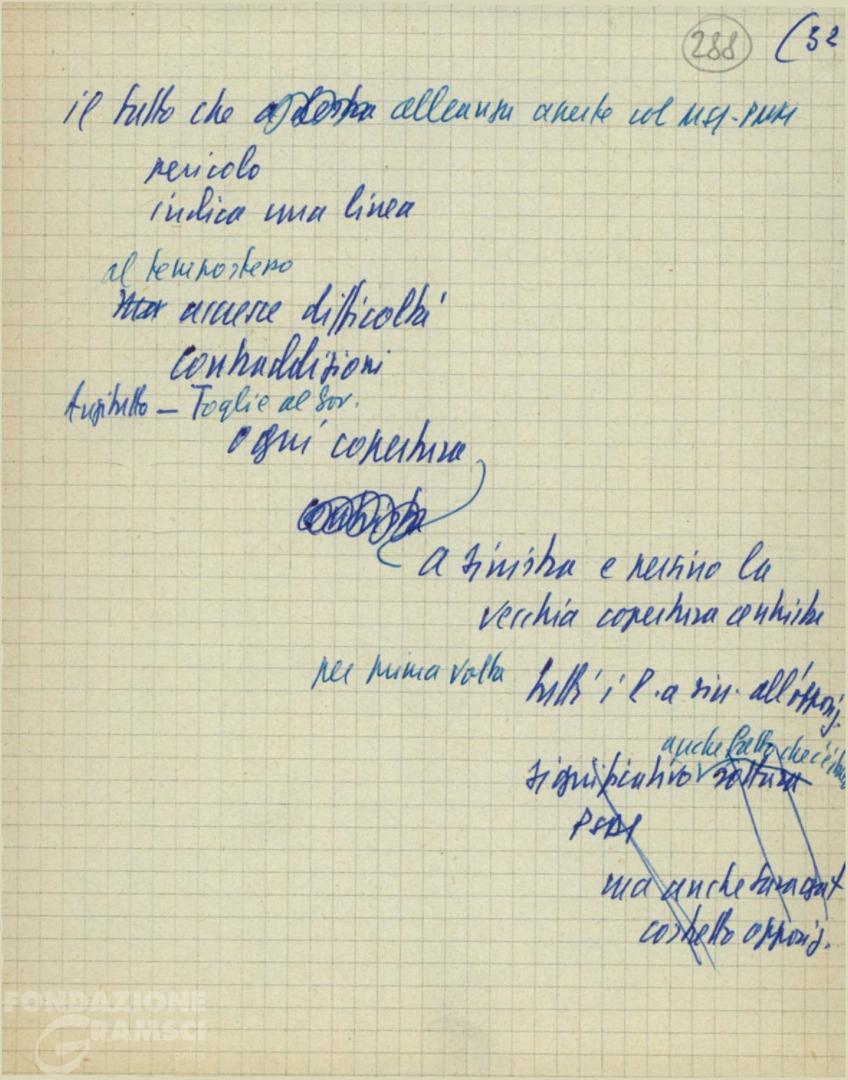 288 (32
il fatto che a destra alleanza aperta col MSI-PMM
pericolo
indica una linea
al tempo stesso
Ma accesce difficoltà
contraddizioni
Anzitutto – Toglie al Gov.
ogni copertura
centrista
a sinistra e persino la
vecchia copertura centrista
per prima volta
tutti i p. a sin. all'opposiz.
anche fatto che c'è stata
significativo rottura
PSDI
ma anche Saragat
costretto opposiz.
FONDAZIONE
GRAMSCI